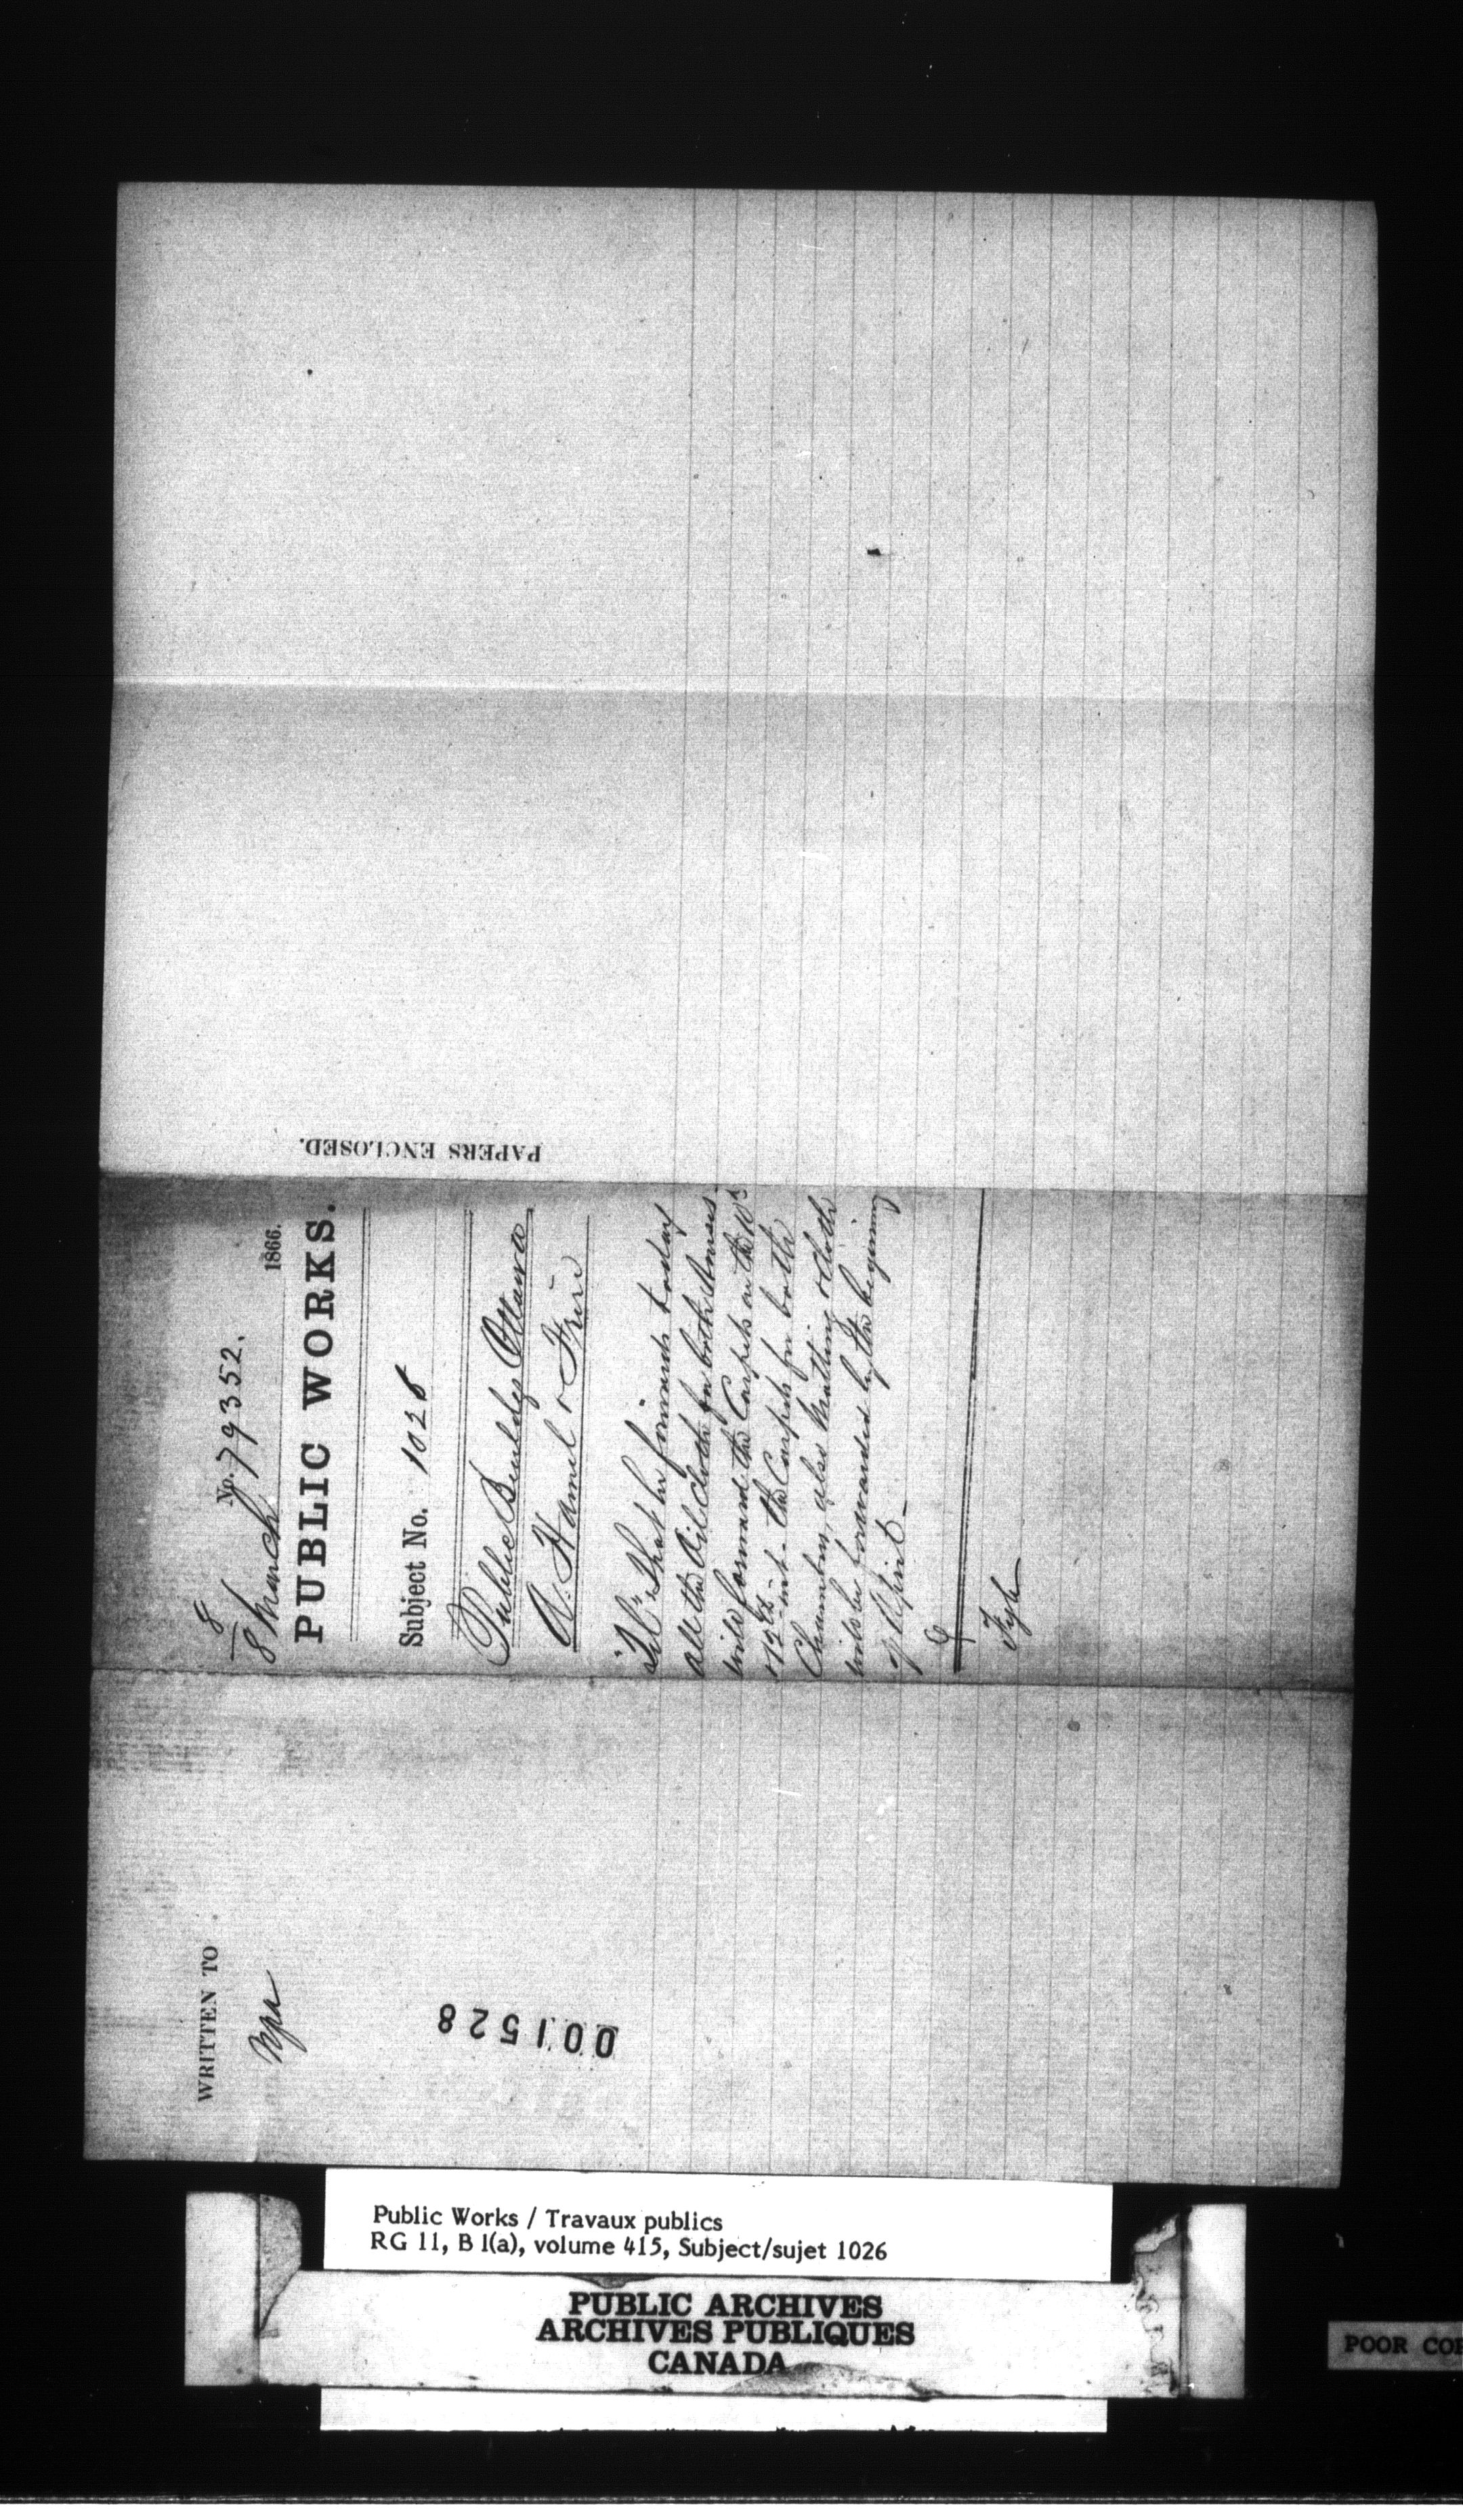 8
No. 79352.
8 March 1866.
PUBLIC WORKS.
Subject No. 1026
Public Buildgs Ottawa
A. Hamel & Frère
Tel: that he forwards today
all the Oil Cloth for both Houses.
will forward the Carpets on the 10th
& 12th inst - the Carpets for both
Chambers, also Matting & cloth
will be forwarded by the beginning
of April -
Fyle
PAPERS ENCLOSED.
WRITTEN TO
001528
Public Works / Travaux publics
RG 11, B 1(a), volume 415, Subject/sujet 1026
PUBLIC ARCHIVES
ARCHIVES PUBLIQUES
CANADA
POOR COP